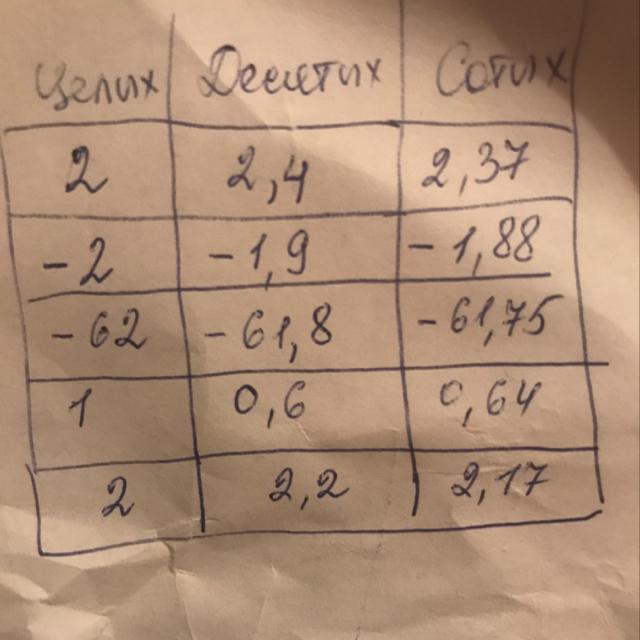 Целых Десятих Сотих
2 2,4 2,37
-2 -1,9 -1,88
-62 -61,8 -61,75
1 0,6 0,64
2 2,2 2,17